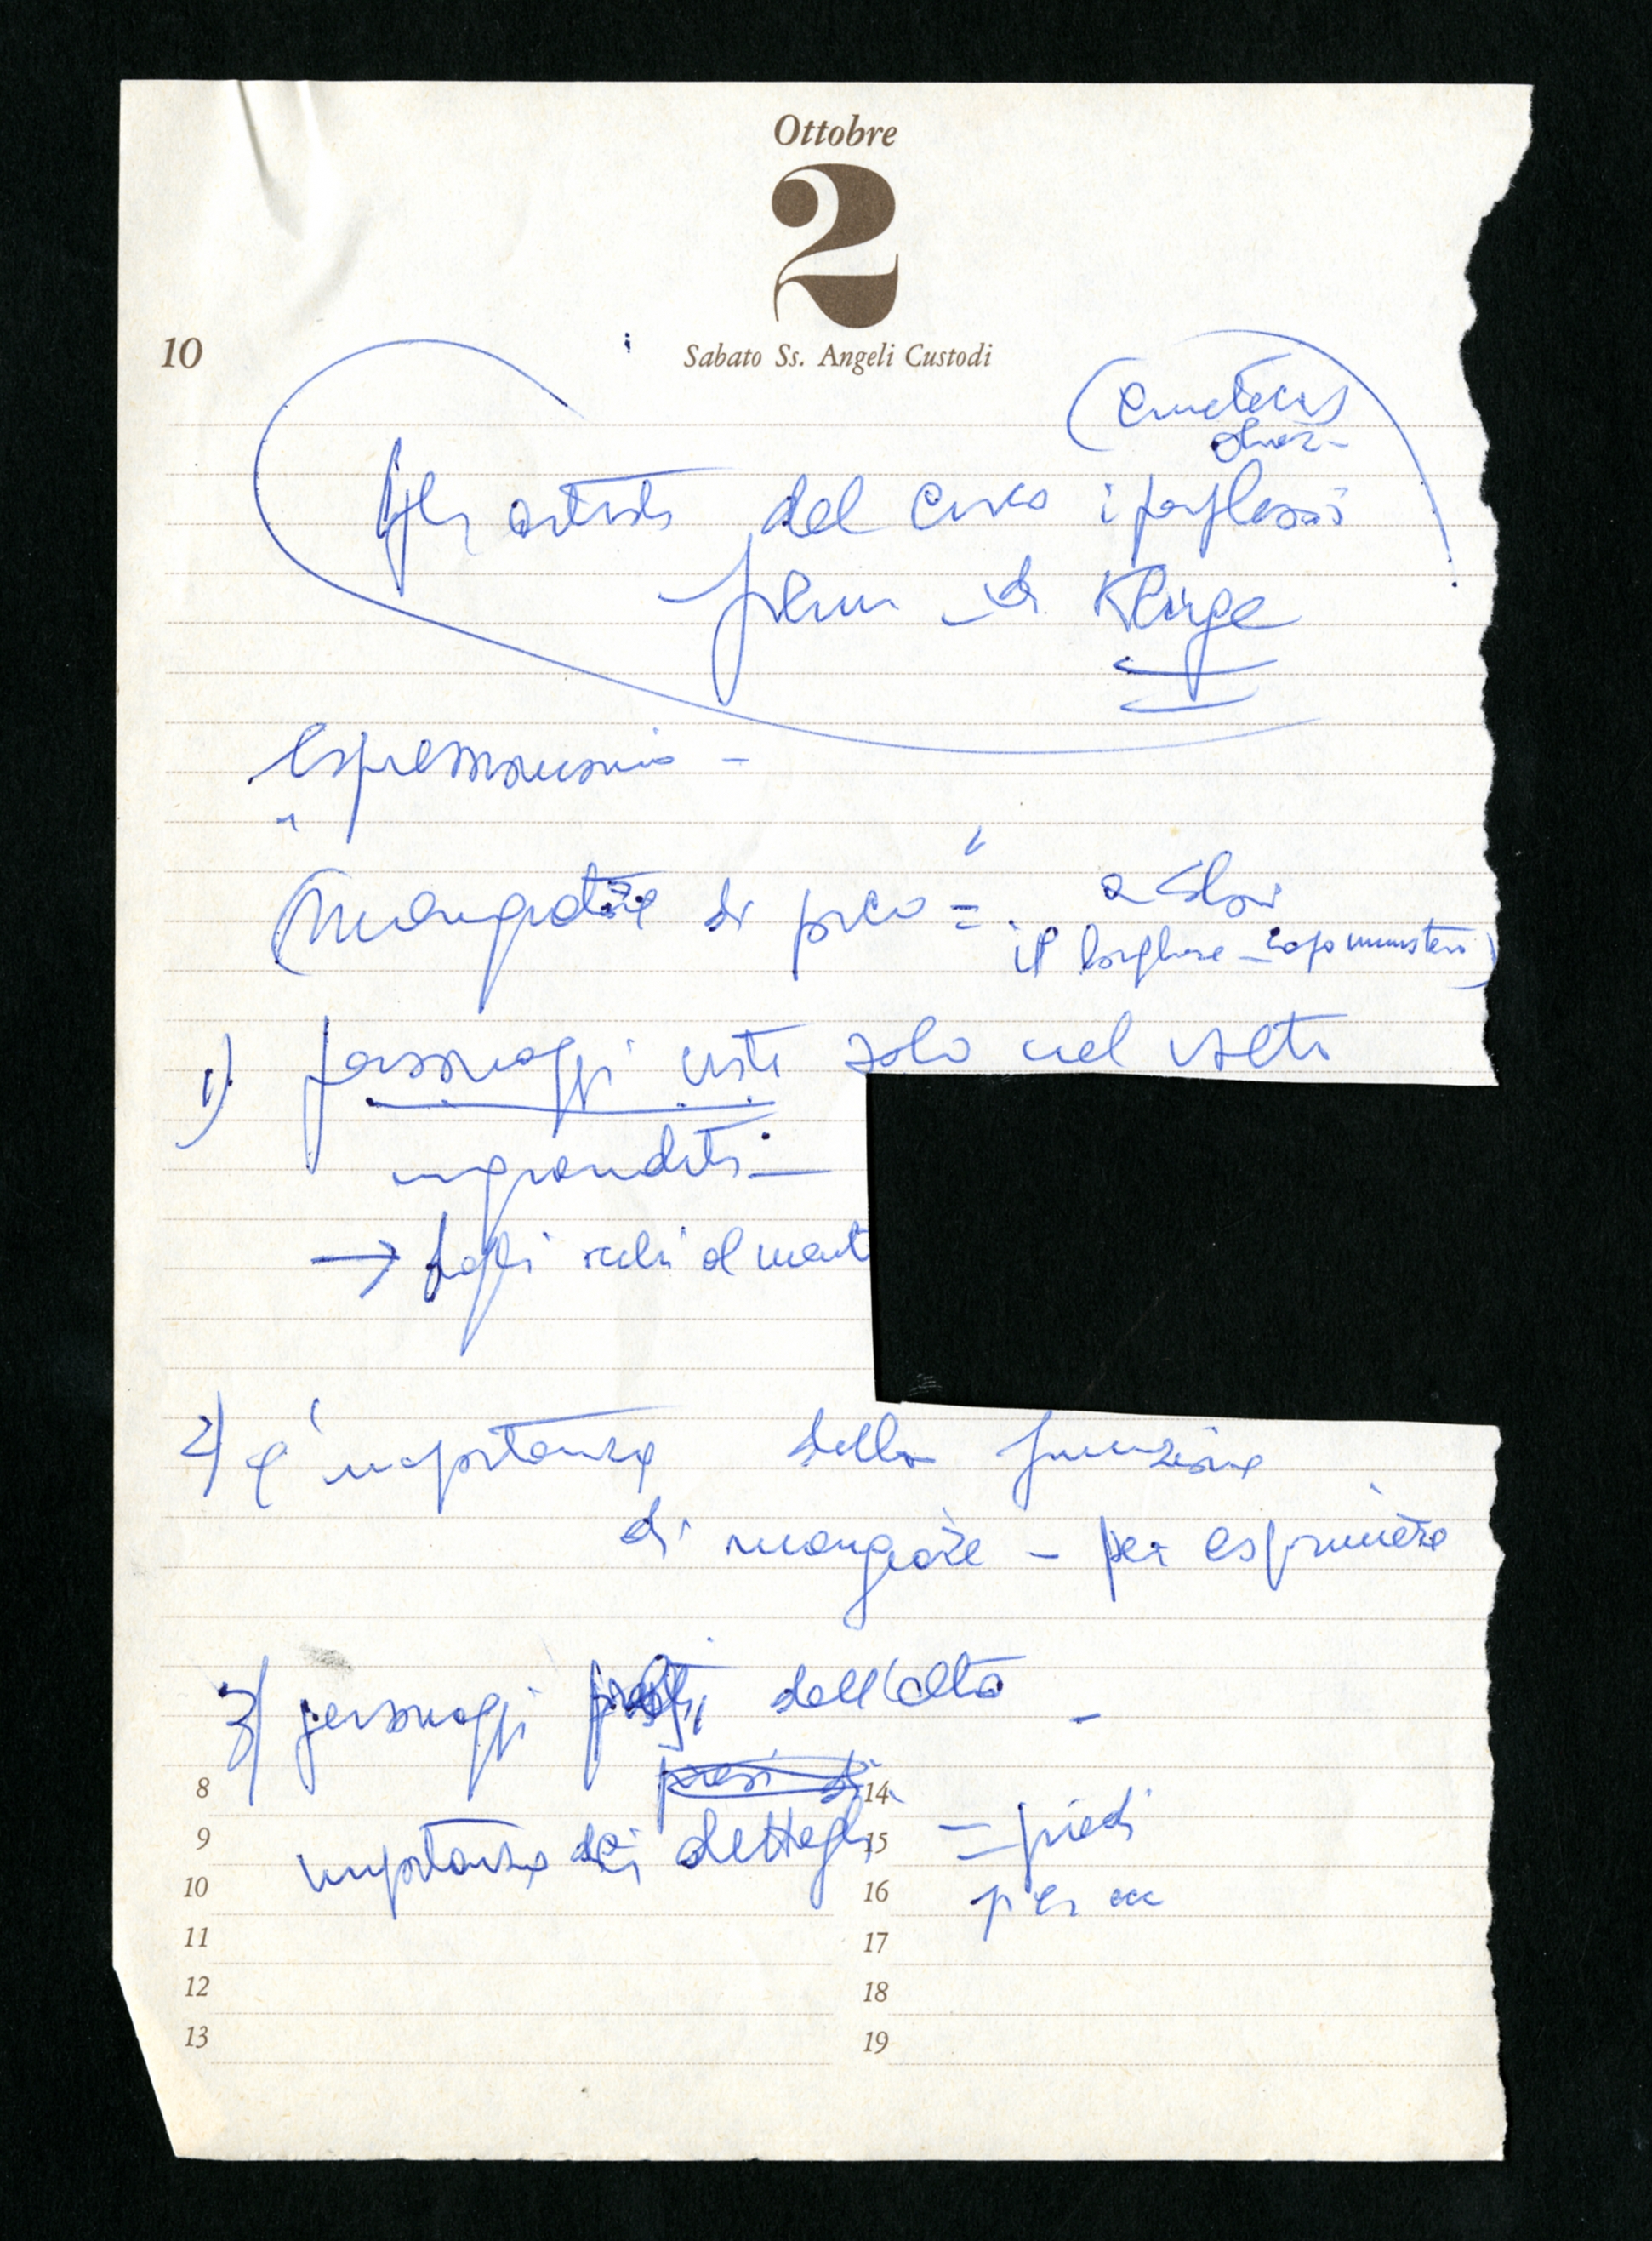 Ottobre
2
10
Sabato Ss. Angeli Custodi
(Cineteca
Gli artisti del circo i perplessi
film di Kluge
espressionismo -
(Mangiatore di
il borghese - capo ministero)
1) personaggi visti solo nel volto
ingranditi -
→ fogli
2) l'importanza della funzione
di mangiare - per esprimere
3) personaggi dall'alto -
8 presi 14
importanza dei dettagli = piedi
9 15
10 16 per
11 17
12 18
13 19